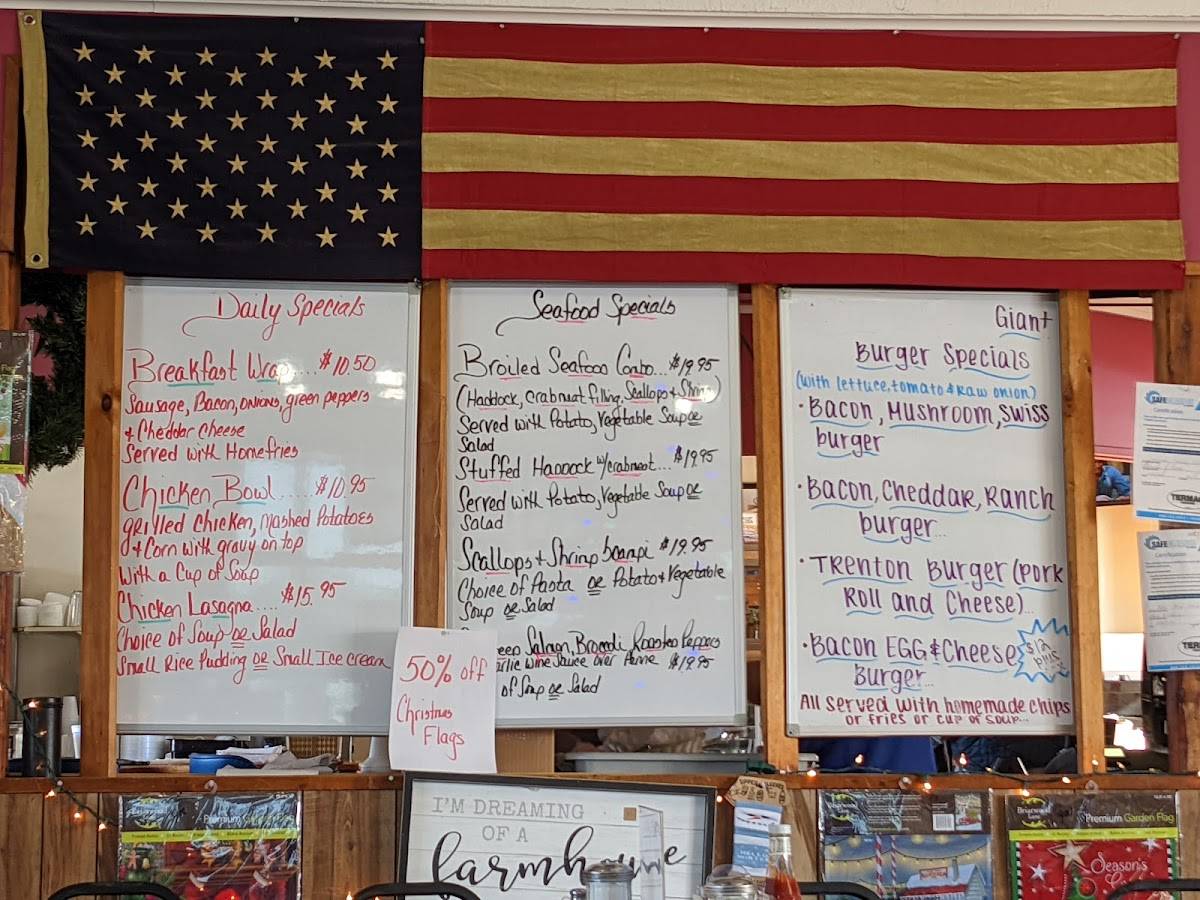 Daily Specials
Breakfast Wrap....$10.50
Sausage, Bacon, onions, green peppers
+ Cheddar Cheese
Served with Homefries
Chicken Bowl......$10.95
grilled Chicken, Mashed Potatoes
+ Corn with gravy on top
With a Cup of Soup
Chicken Lasagna....$15.95
Choice of Soup or Salad
Small Rice Pudding or Small Ice cream
Seafood Specials
Broiled Seafood Combo...$19.95
(Haddock, crabmeat filling, Scallops + Shrimp)
Served with Potato, Vegetable Soup or
Salad
Stuffed Haddock w/crabmeat...$19.95
Served with Potato, Vegetable Soup or
Salad
Scallops + Shrimp Scampi $19.95
Choice of Pasta or Potato + Vegetable
Soup or Salad
Salmon, Broccoli, Roasted Peppers
Wine Sauce over Penne $19.95
of Soup or Salad
Giant
Burger Specials
(with lettuce, tomato & raw onion)
• Bacon, Mushroom, Swiss
burger
• Bacon, Cheddar, Ranch
burger...
• Trenton Burger (pork
Roll and Cheese)...
• Bacon EGG & Cheese
Burger...
$12
All served with homemade chips
or fries or cup of soup...
50% off
Christmas
Flags
I'M DREAMING
OF A
farmhouse
Premium Garden Flag
Premium Garden Flag
Season's
SAFE
Certification
TERM
SAFE
Certification
TERM